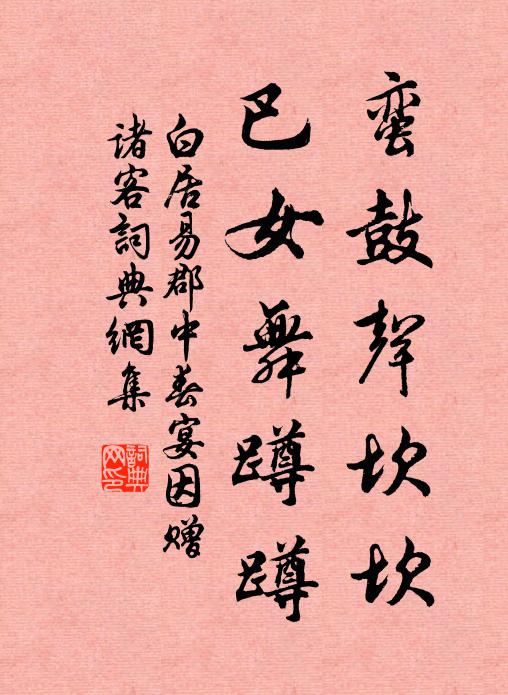 蛮鼓聲坎坎
巴女舞蹲蹲
白居易郡中春宴因赠
诸客詞典網集
詞典
网印